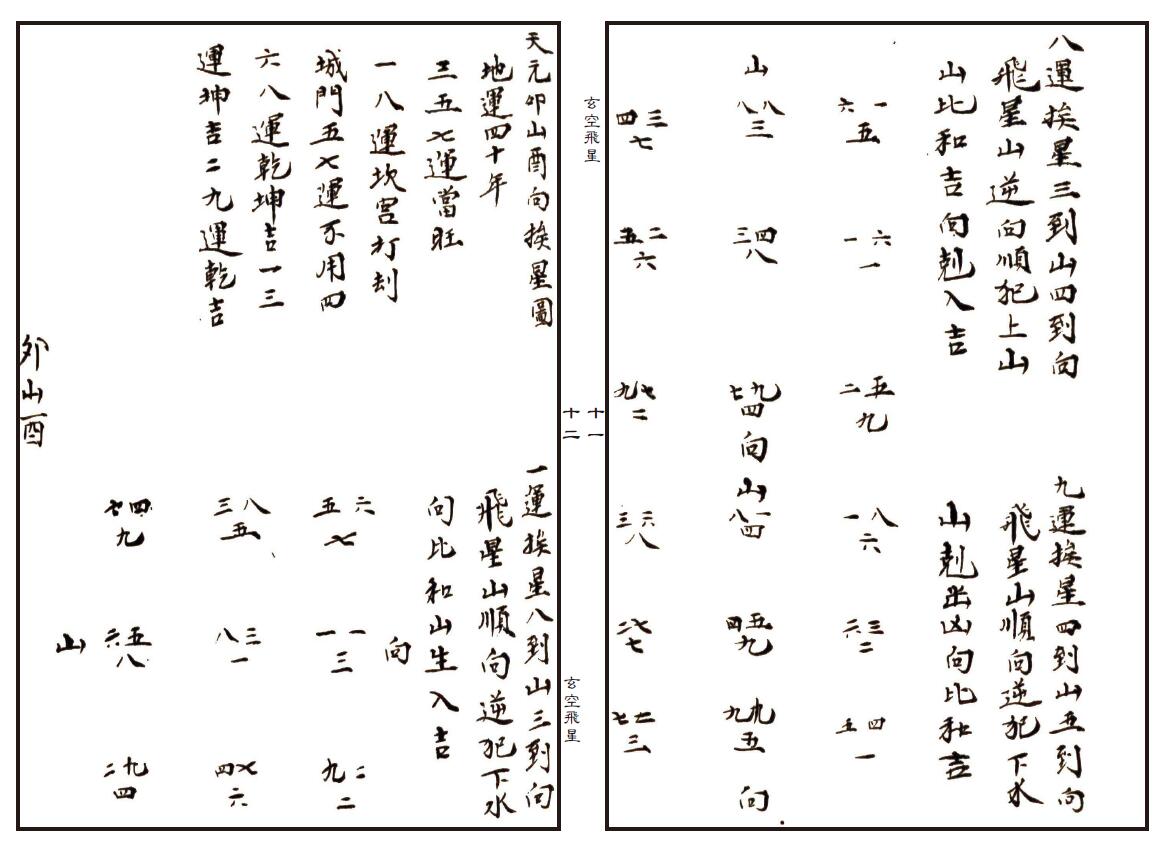 八運挨星三到山四到向
飛星山逆向順犯上山
山比和吉向剋入吉
六一
五
一六
一
二五
九
山
八八
三
三四
八
七九
四
向
四三
七
五二
六
九七
二
九運挨星四到山五到向
飛星山順向逆犯下水
山剋出凶向比和吉
一八
六
六三
二
五四
一
山
八一
四
四五
九
九九
五
向
三六
八
八七
七
七二
三
玄空飛星
十一
十二
玄空飛星
天元卯山酉向挨星圖
地運四十年
三五七運當旺
一八運坎宮打刦
城門五七運不用四
六八運乾坤吉一三
運坤吉二九運乾吉
一運挨星八到山三到向
飛星山順向逆犯下水
向比和山生入吉
向
五六
七
一一
三
九二
二
三八
五
八三
一
四七
六
七四
九
六五
八
二九
四
山
卯山酉